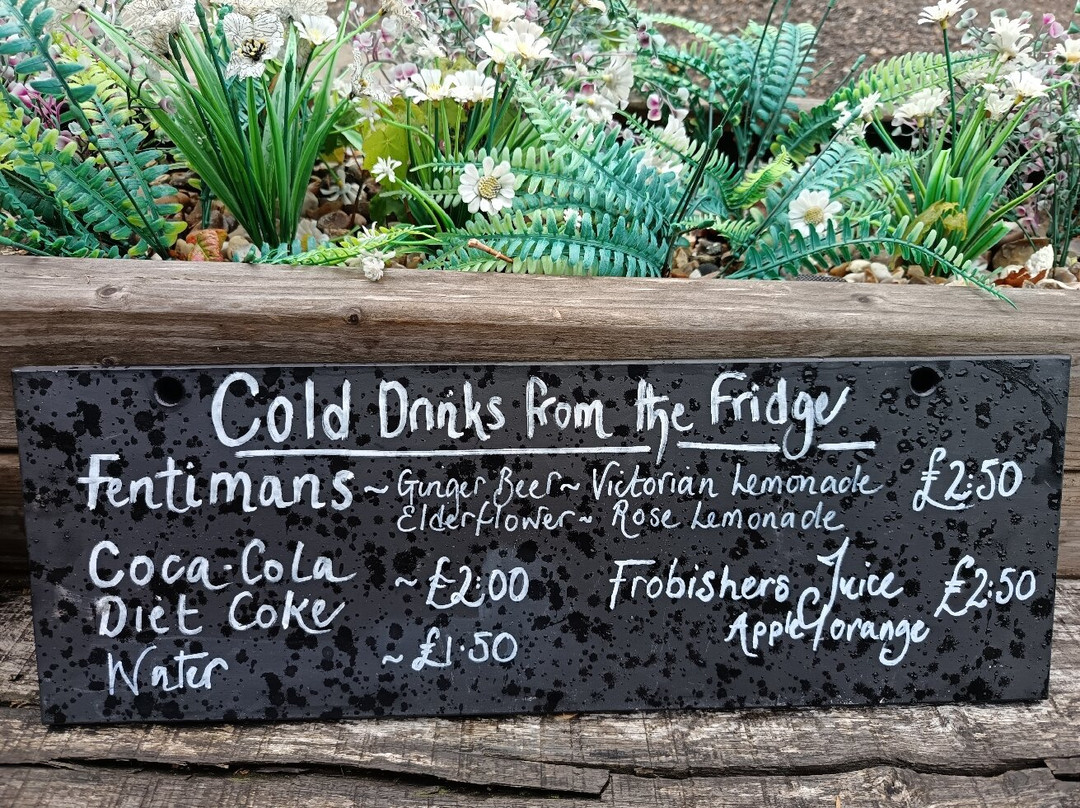 Cold Drinks from the Fridge
Fentimans ~ Ginger Beer ~ Victorian Lemonade £2:50
Elderflower ~ Rose Lemonade
Coca-Cola ~ £2:00
Diet Coke
Water ~ £1.50
Frobishers Juice £2:50
Apple/orange